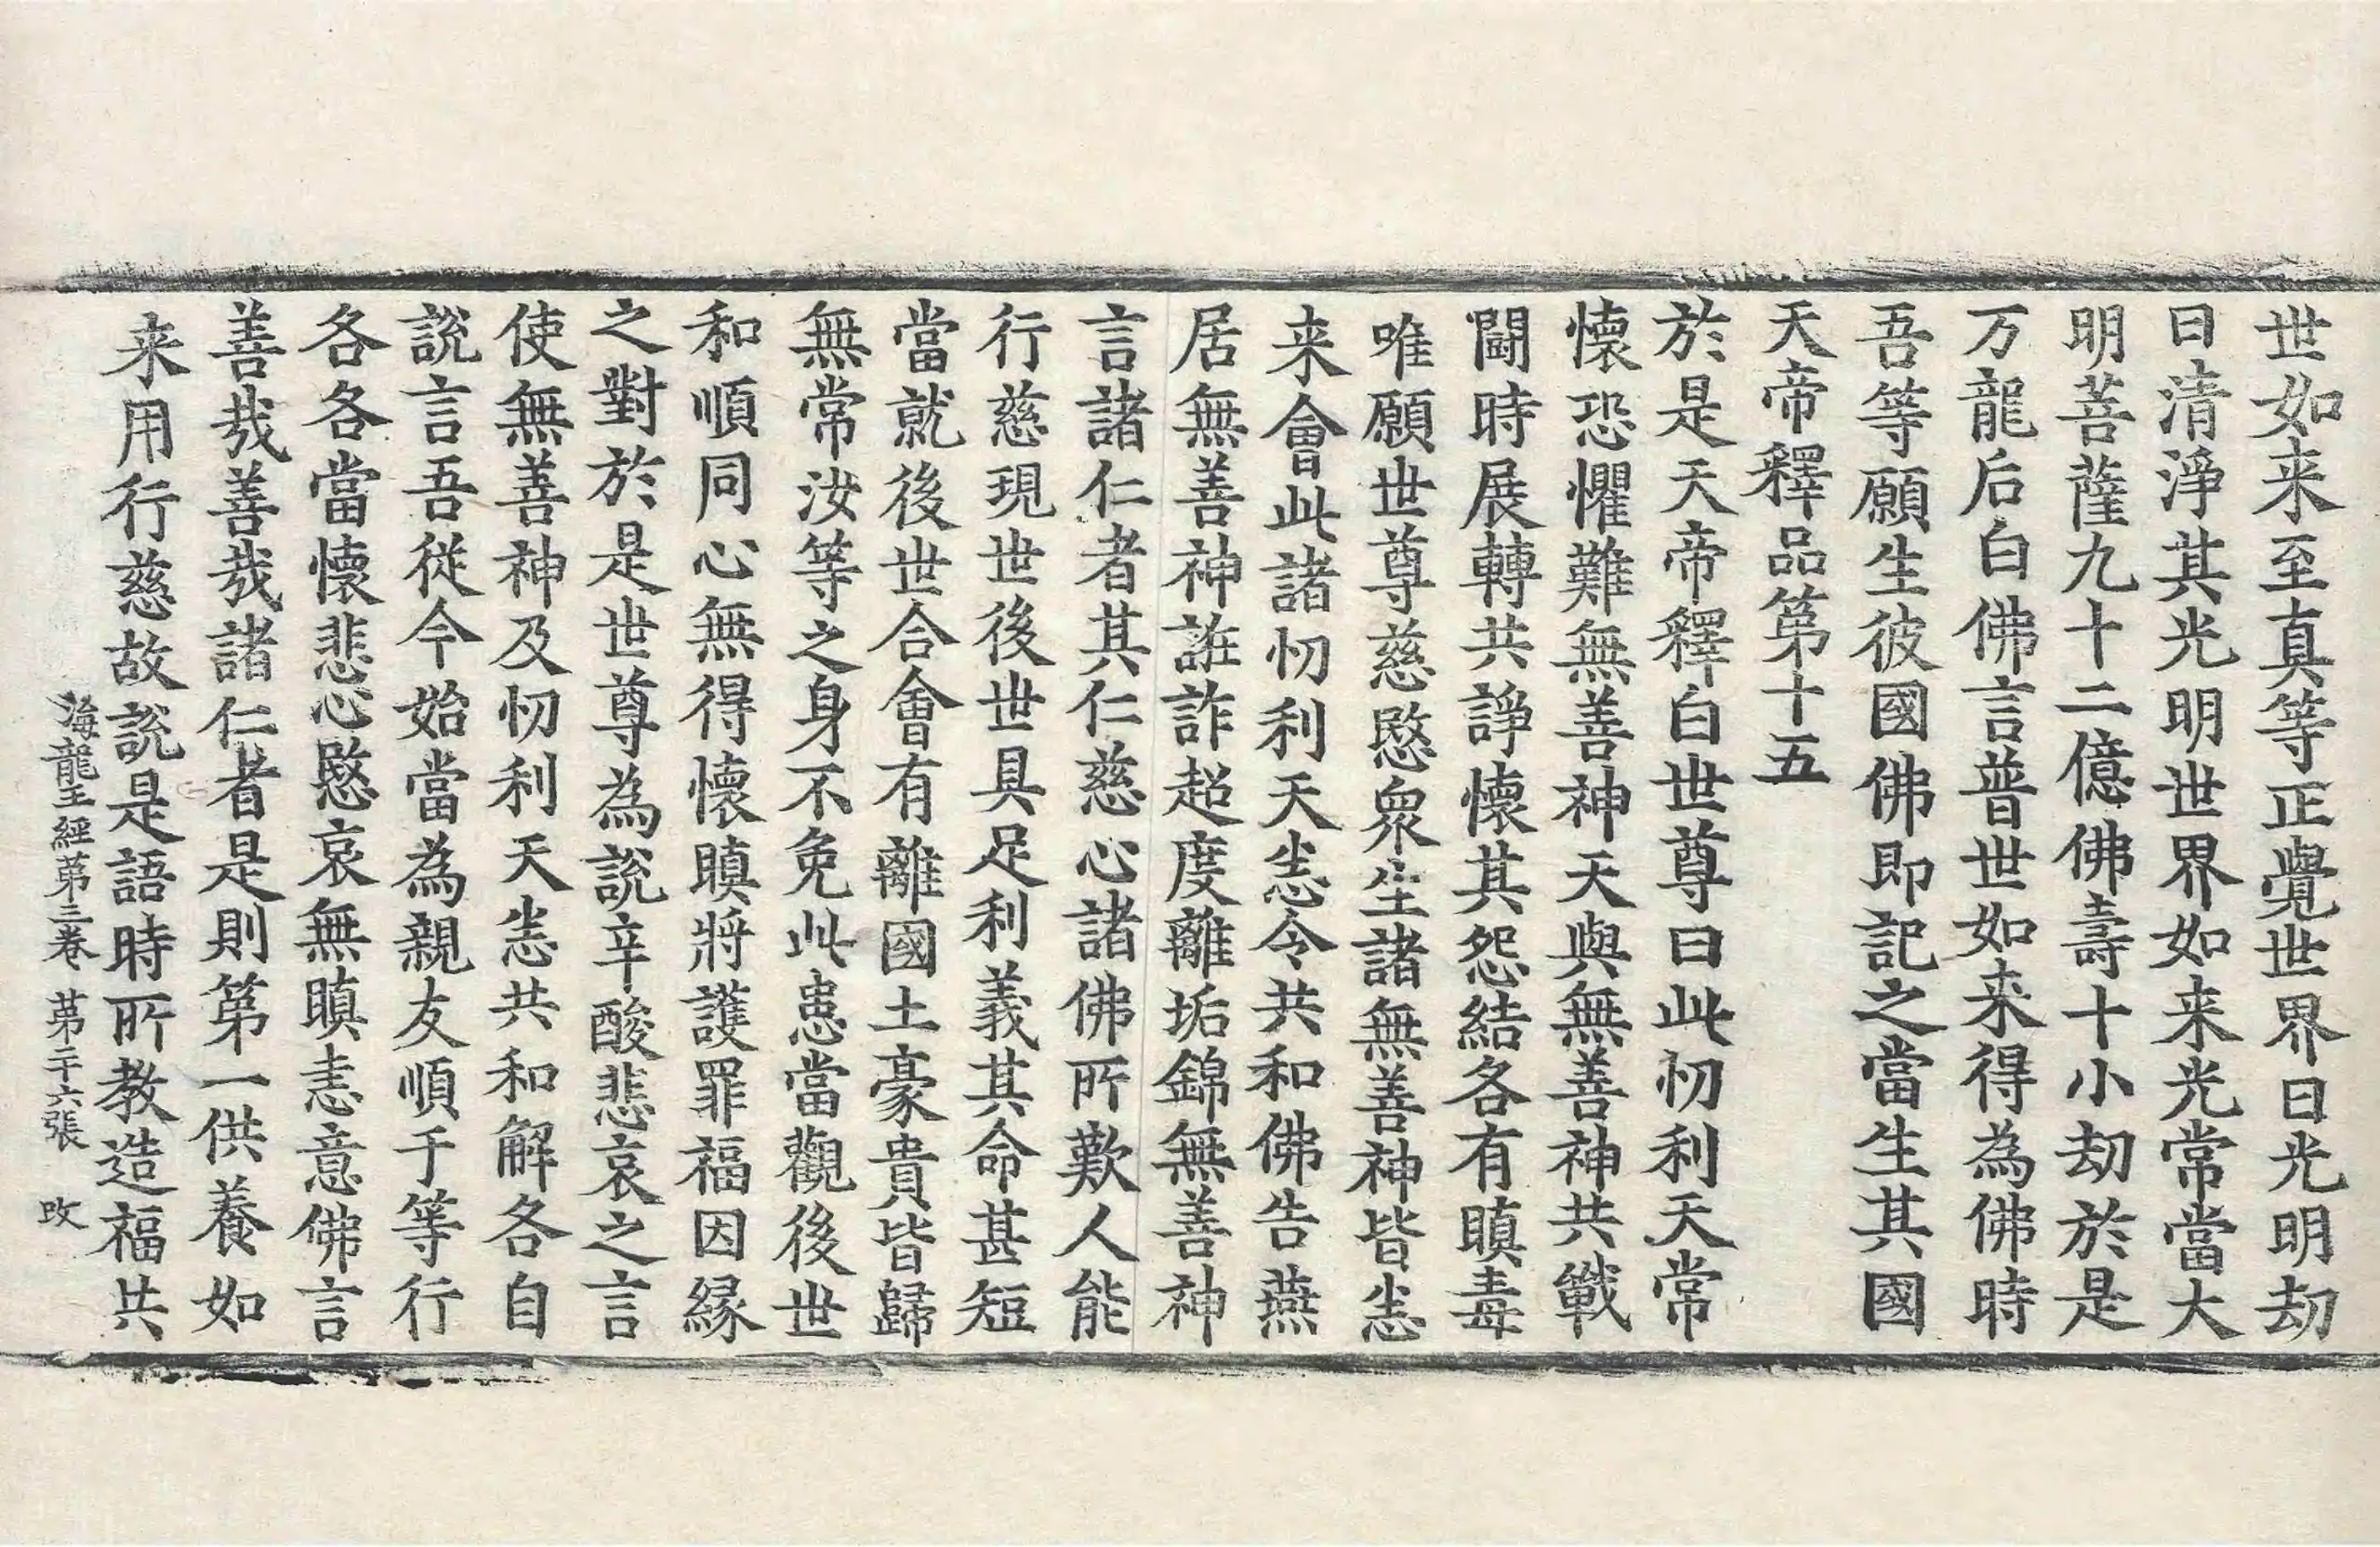 世如来至真等正覺世界曰光明劫
曰清淨其光明世界如来光常當大
明菩薩九十二億佛壽十小劫於是
万龍后白佛言普世如来得為佛時
吾等願生彼國佛即記之當生其國
天帝釋品第十五
於是天帝釋白世尊曰此忉利天常
懷恐懼難無善神天與無善神共戰
鬪時展轉共諍懷其怨結各有瞋毒
唯願世尊慈愍衆生諸無善神皆恙
来會此諸忉利天恙令共和佛告燕
居無善神誑詐超度離垢錦無善神
言諸仁者其仁慈心諸佛所歎人能
行慈現世後世具足利義其命甚短
當就後世合會有離國土豪貴皆歸
無常汝等之身不免此患當觀後世
和順同心無得懷瞋將護罪福因縁
之對於是世尊為説辛酸悲哀之言
使無善神及忉利天恙共和解各自
説言吾從今始當為親友順于等行
各各當懷悲心愍哀無瞋恚意佛言
善哉善哉諸仁者是則第一供養如
来用行慈故説是語時所教造福共
海龍王經第三卷 第二十六張 改